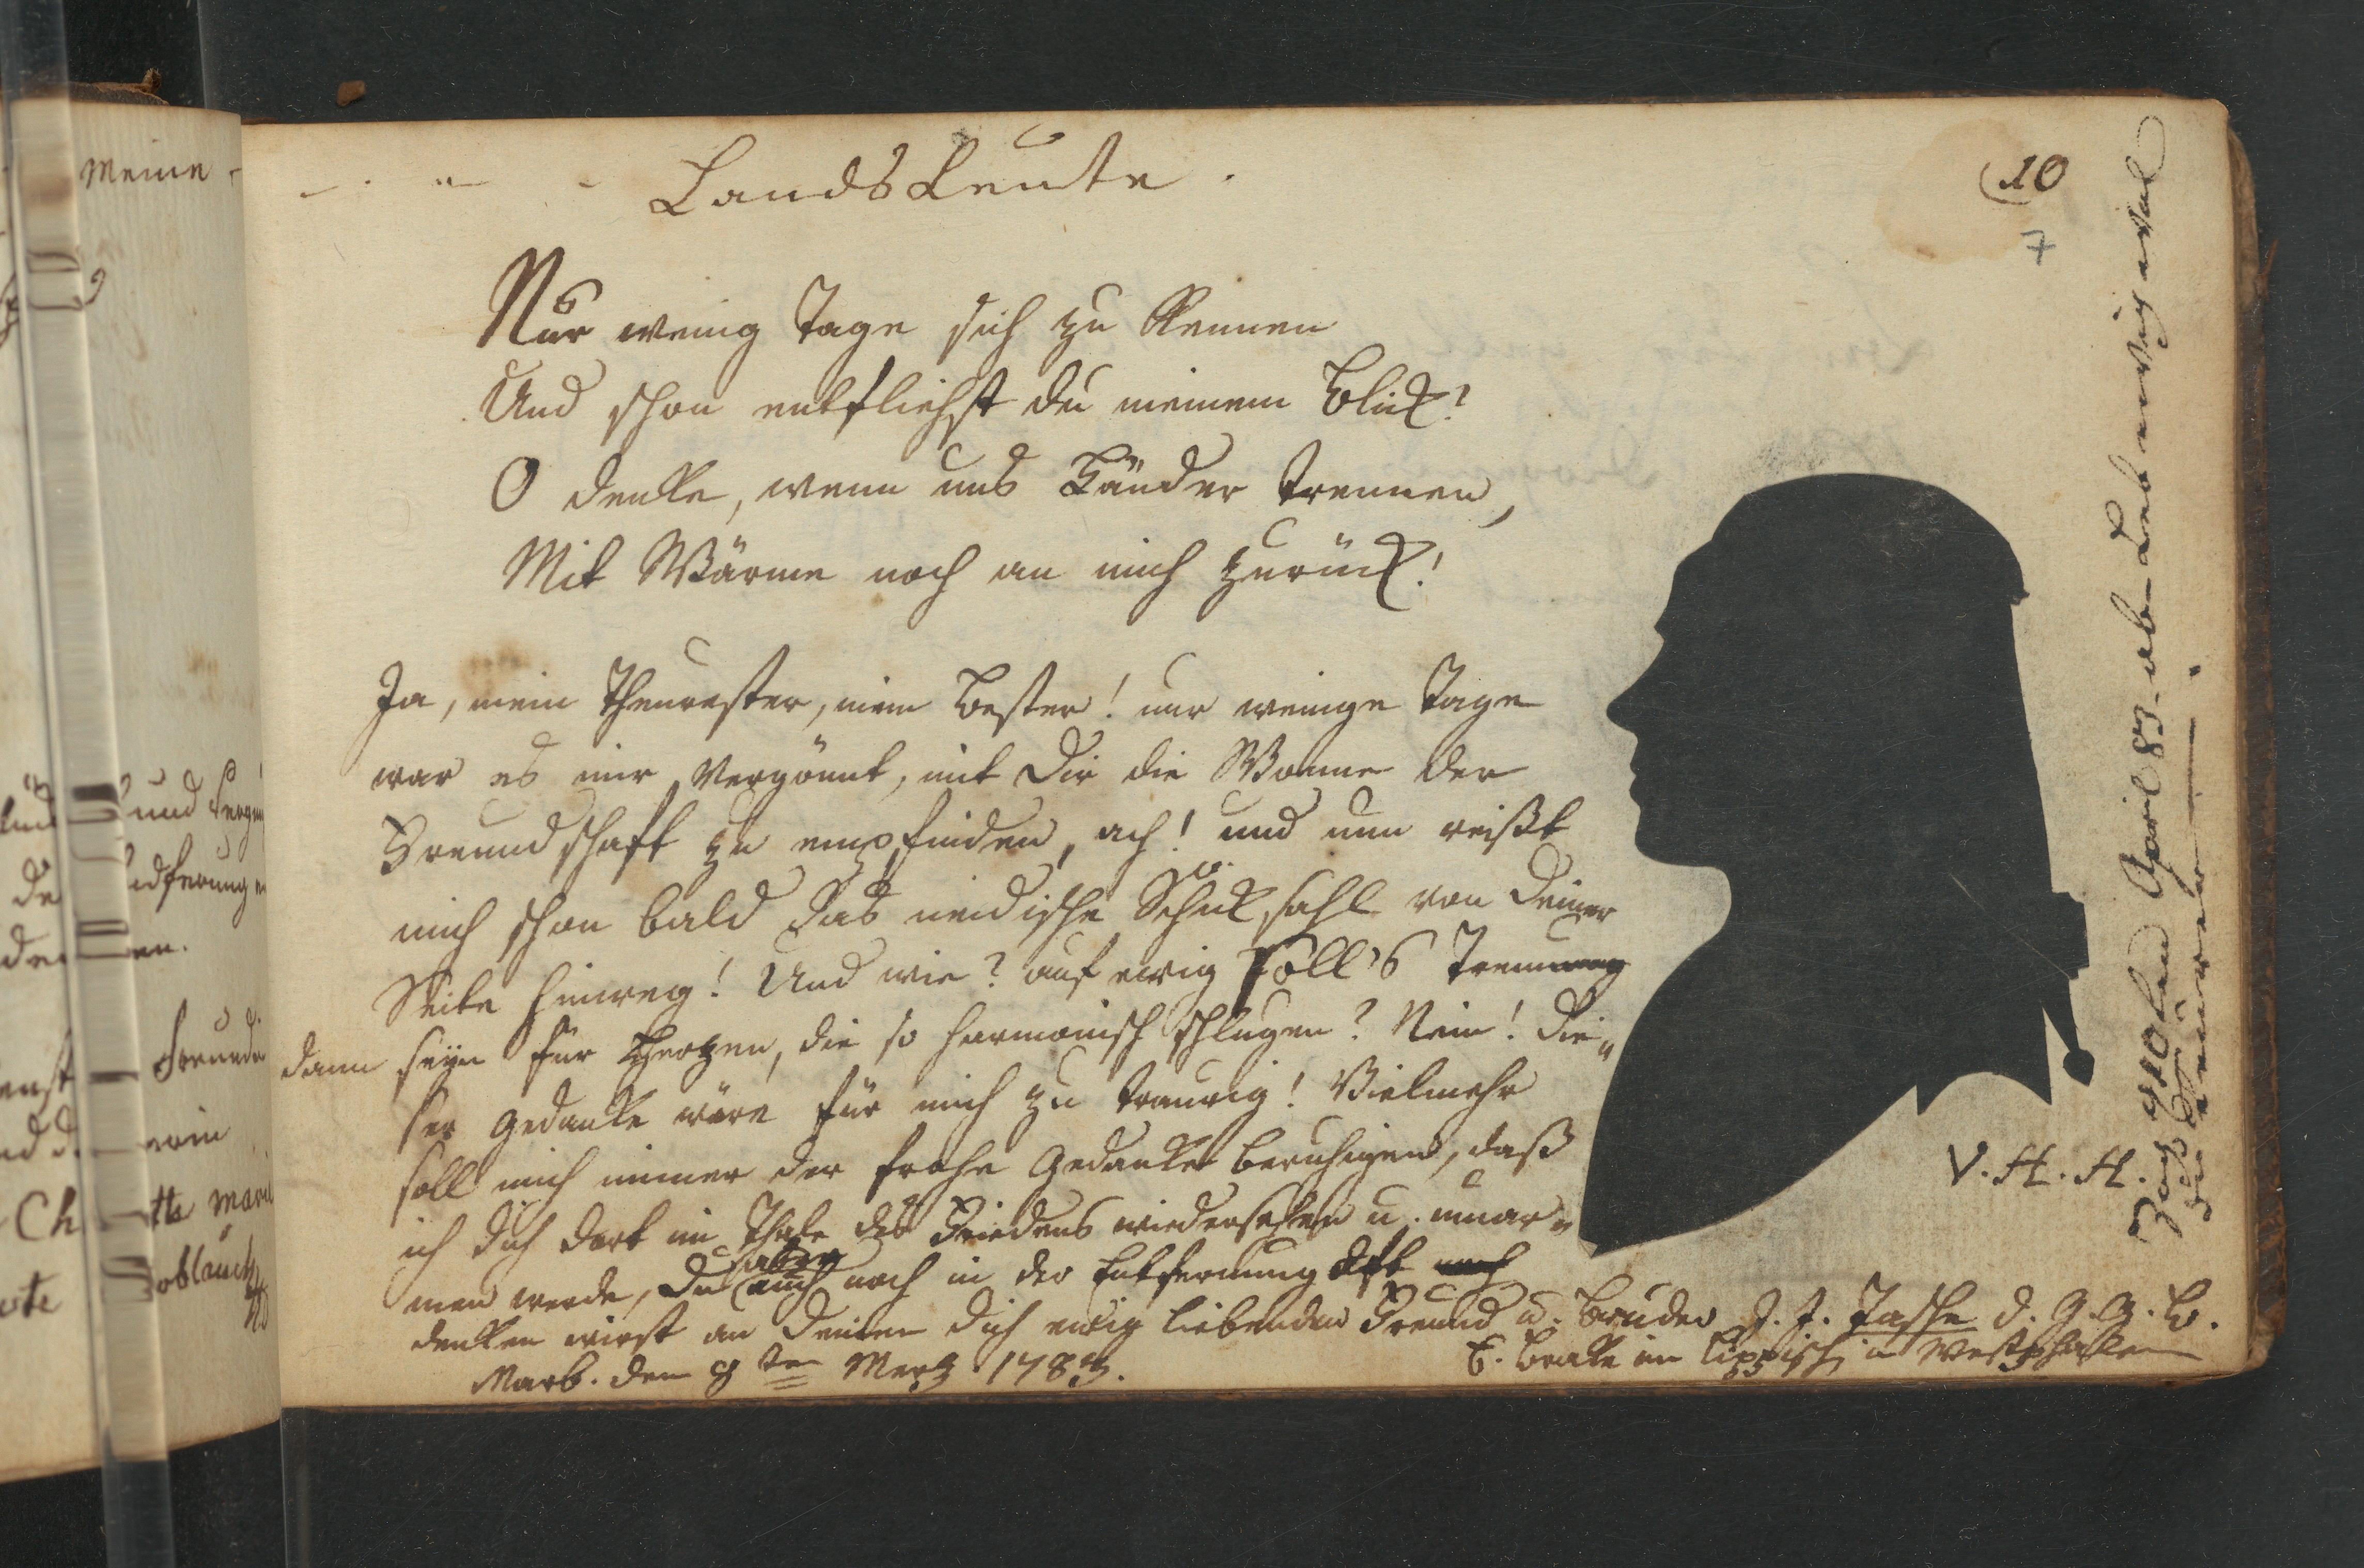 Meine -
- . " - LandsLeute .
10
7
Nur wenig Tage dich zu Kennen
Und schon entfliehst du meinem Blick?
O denke, wenn uns Länder trennen,
Mit Wärme noch an mich zurück!
Ja, mein Theurester, mein Bester! nur wenige Tage
war es mir vergönnt, mit Dir die Wonne der
Freundschaft zu empfinden, ach! und nun reißt
mich schon bald das neidische Schiksahl von Deiner
Seite hinweg! Und wie? auf ewig soll's Trennung
dann seyn für Herzen, die so harmonisch schlugen? Nein! Die„
ser Gedanke wäre für mich zu traurig! Vielmehr
soll mich immer der frohe Gedanke beruhigen, daß
ich dich dort im Thale des Friedens wiedersehen u. umar„
men werde, Du aber auch noch in der Entfernung oft
denken wirst an Deinen Dich ewig liebenden Freund u. Bruder J. J. Tasche d. G. G. B.
Marb. den 8ten Merz 1783.
E. Brake im Lippisch in Westphalen
V. H. H.
April 83.